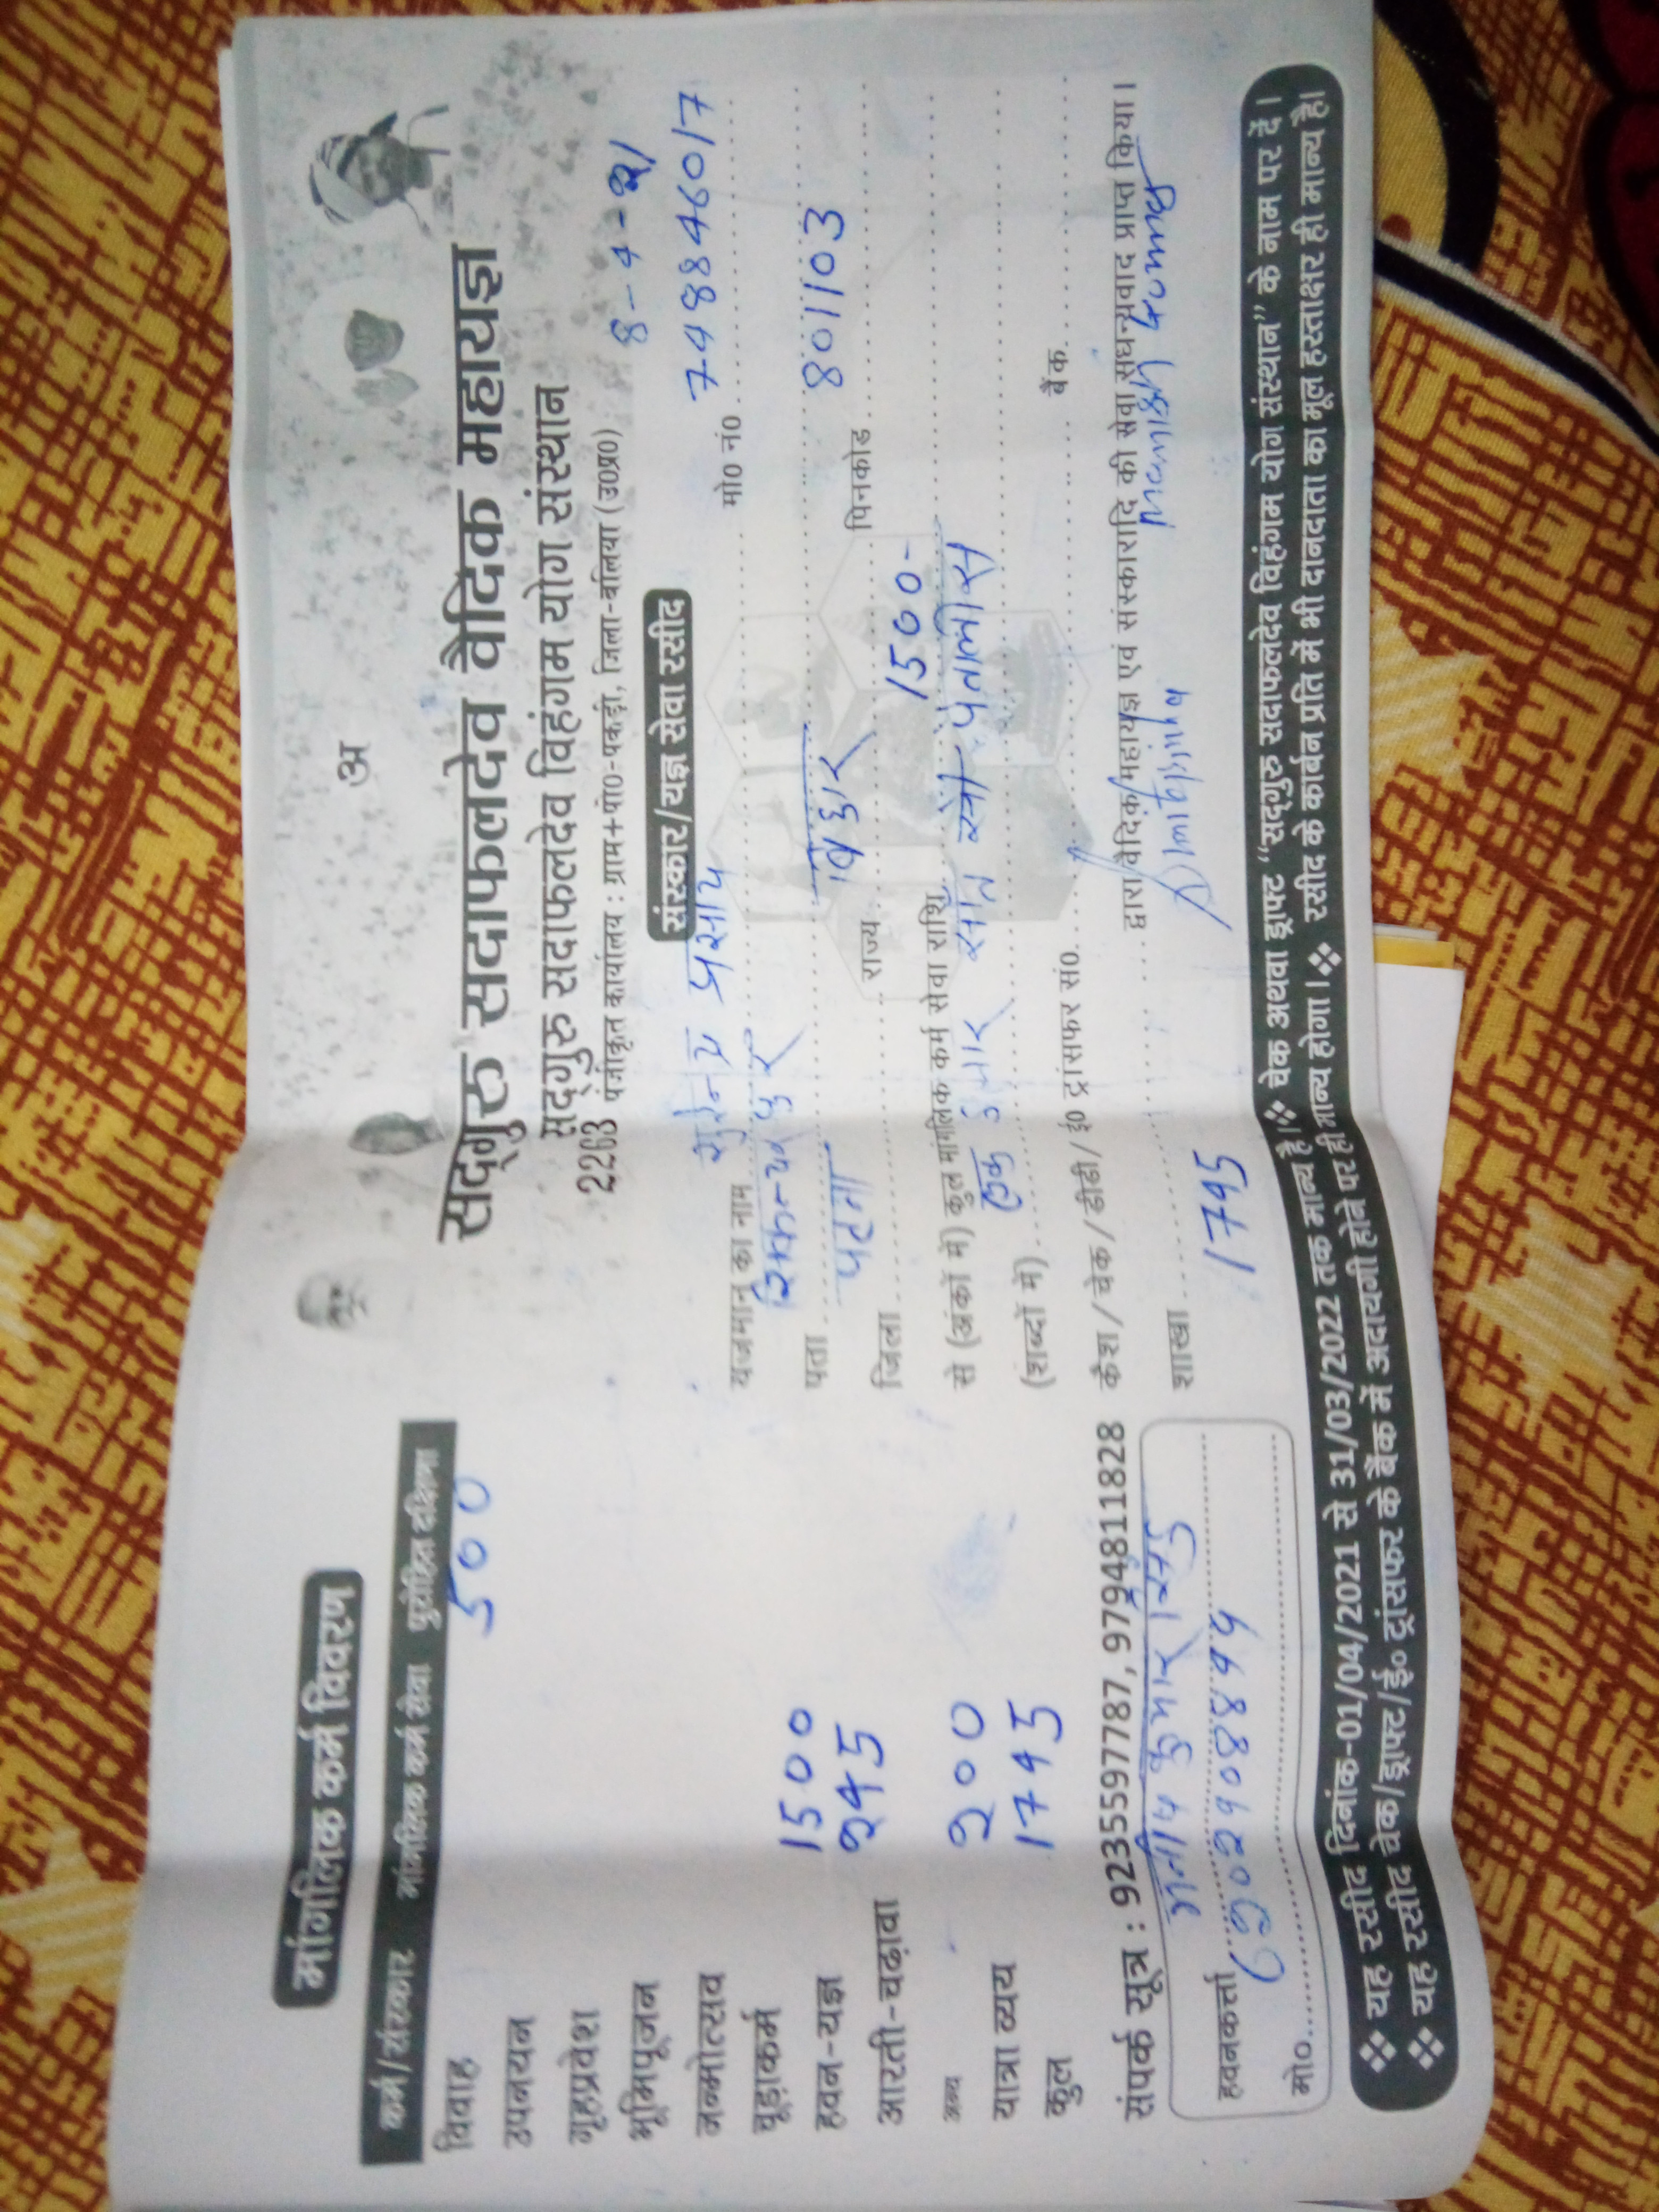 मांगलिक कर्म विवरण
कर्म/संस्कार मांगलिक कर्म सेवा पुरोहित दक्षिणा
500
विवाह
उपनयन
गृहप्रवेश
भूमिपूजन
जन्मोत्सव
चूड़ाकर्म
हवन-यज्ञ 1500
आरती-चढ़ावा २45
अन्य
यात्रा व्यय २००
कुल 1745
संपर्क सूत्र : 9235597787, 9794811828
मनीष कुमार
हवनकर्त्ता
मो०
अ
सद्गुरु सदाफलदेव वैदिक महायज्ञ
सद्गुरु सदाफलदेव विहंगम योग संस्थान
2203 पंजीकृत कार्यालय : ग्राम+पो०-पकड़ी, जिला-बलिया (उ०प्र०)
संस्कार/यज्ञ सेवा रसीद
यजमान का नाम प्रसाद मो० नं०
पता
जिला पटना राज्य बिहार पिनकोड 801103
से (अंकों में) कुल मांगलिक कर्म सेवा राशि 1500-
(शब्दों में) एक हजार सात सौ पैंतालीस
कैश / चेक / डीडी / ई० ट्रांसफर सं० बैंक
शाखा द्वारा वैदिक महायज्ञ एवं संस्कारादि की सेवा सधन्यवाद प्राप्त किया।
1745 Manish Kumar
❖ यह रसीद दिनांक-01/04/2021 से 31/03/2022 तक मान्य है। ❖ चेक अथवा ड्राफ्ट “सद्गुरु सदाफलदेव विहंगम योग संस्थान” के नाम पर दें।
❖ यह रसीद चेक/ड्राफ्ट/ई० ट्रांसफर के बैंक में अदायगी होने पर ही मान्य होगा। ❖ रसीद के कार्बन प्रति में भी दानदाता का मूल हस्ताक्षर ही मान्य है।